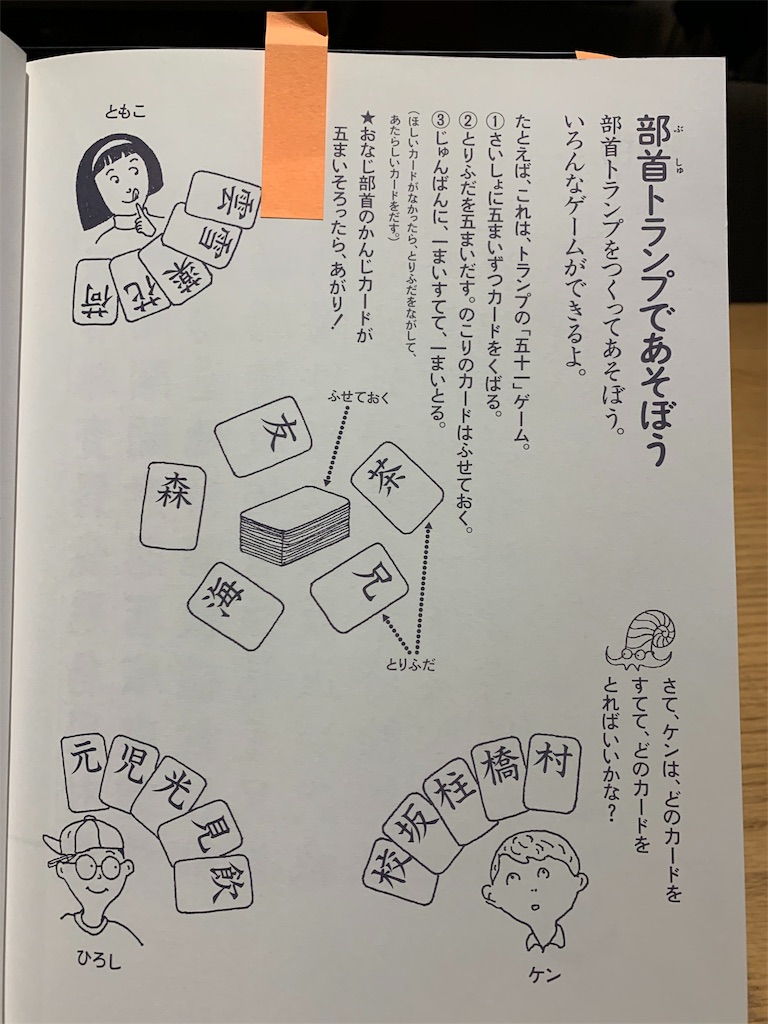 部首トランプであそぼう
ぶ しゅ
部首トランプをつくってあそぼう。
いろんなゲームができるよ。
たとえば、これは、トランプの「五十一」ゲーム。
①さいしょに五まいずつカードをくばる。
②とりふだを五まいだす。のこりのカードはふせておく。
③じゅんばんに、一まいすてて、一まいとる。
(ほしいカードがなかったら、とりふだをながして、
あたらしいカードをだす。)
★おなじ部首のかんじカードが
五まいそろったら、あがり!
ともこ
雲
雪
薬
花
荷
ふせておく
友
茶
森
兄
とりふだ
さて、ケンは、どのカードを
すてて、どのカードを
とればいいかな?
村
橋
柱
坂
枝
ケン
元
児
光
見
飲
ひろし